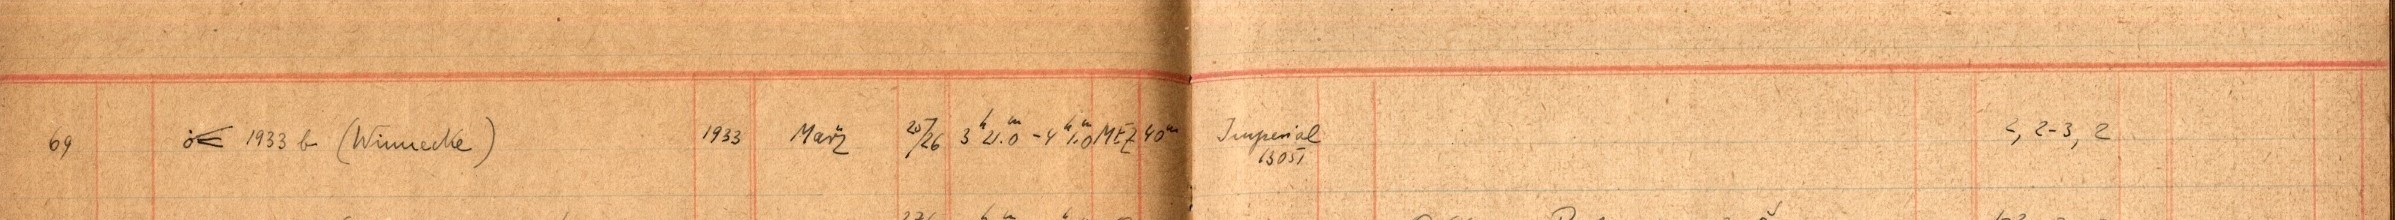 69 ☄ 1933 b (Winnecke) 1933 März 25/26 3h 21.m0 - 4h 1.m0 MEZ 40m Imperial 2-3, 2
1305I